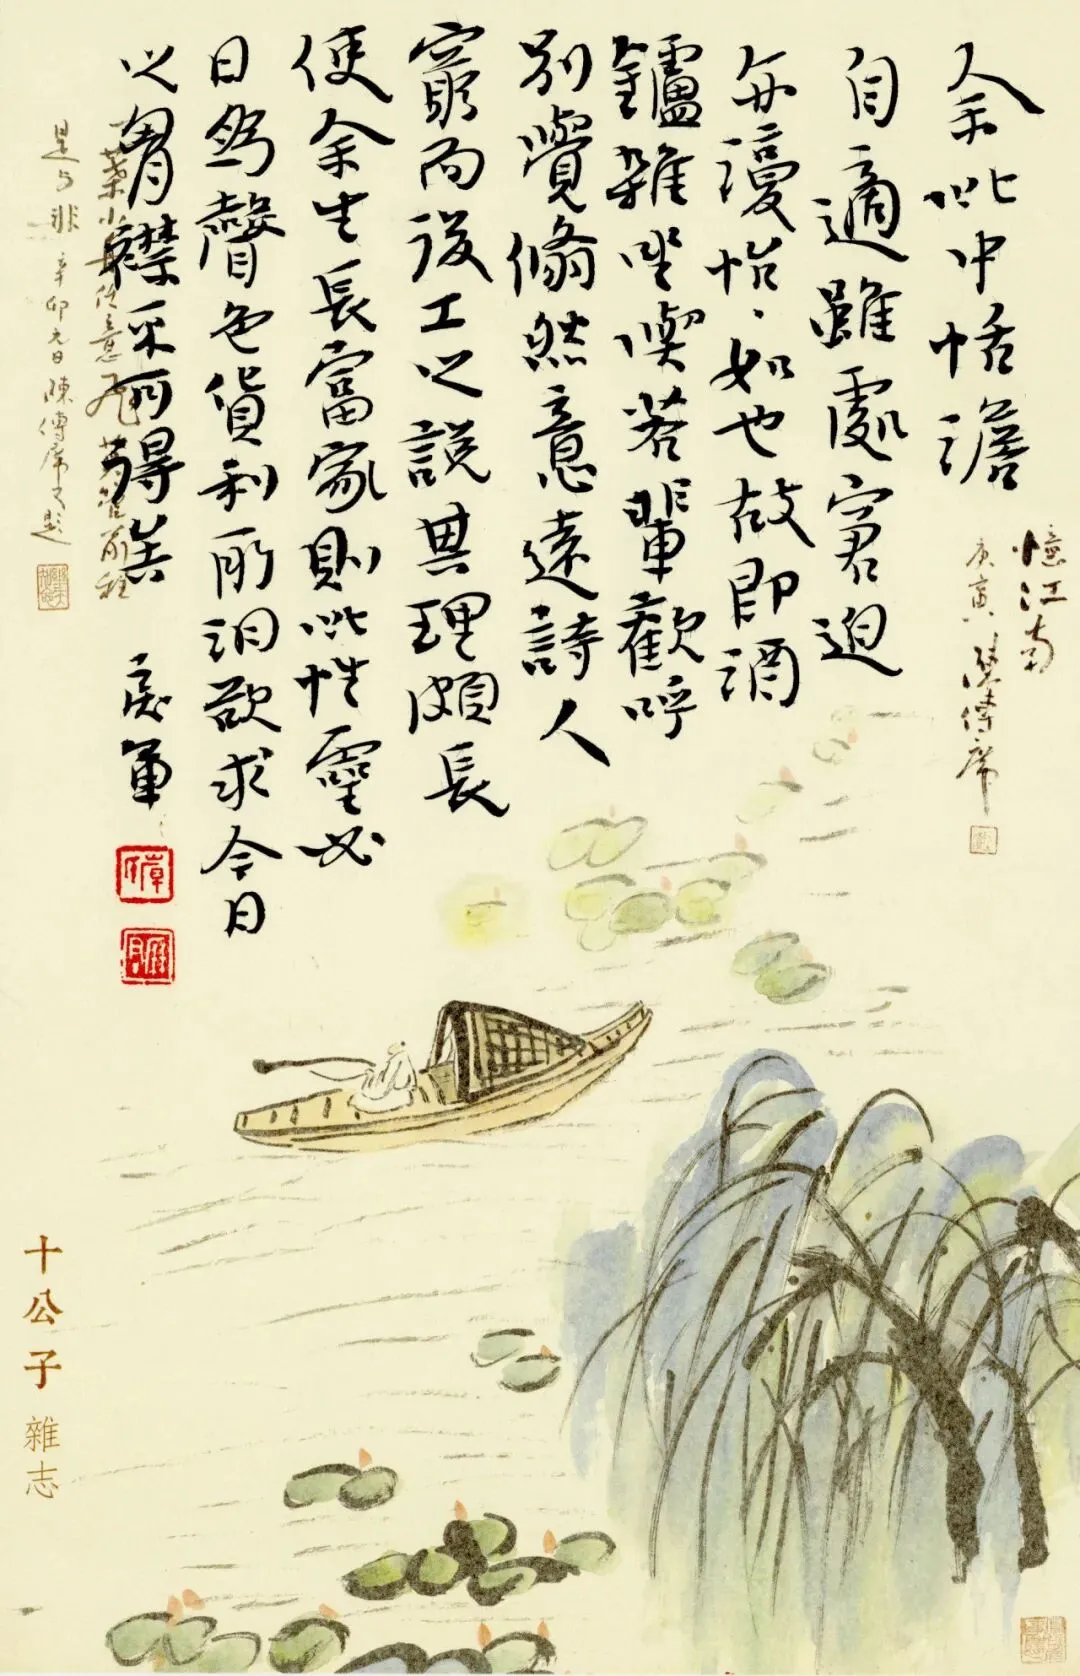 憶江南
庚寅 陳傳席
余此中恬澹
自適雖處窘迫
每謾怡、如也故即酒
鑪雜坐喫茗輩歡呼
別覺翛然意遠詩人
窮而後工之說其理頗長
使余生長富家則此性靈必
日爲聲色貨利所汩欲求今日
之胸襟不可得矣
一葉小舟任意飛 莫管前程
是与非 辛卯元日陳傳席又題
十公子 雜志